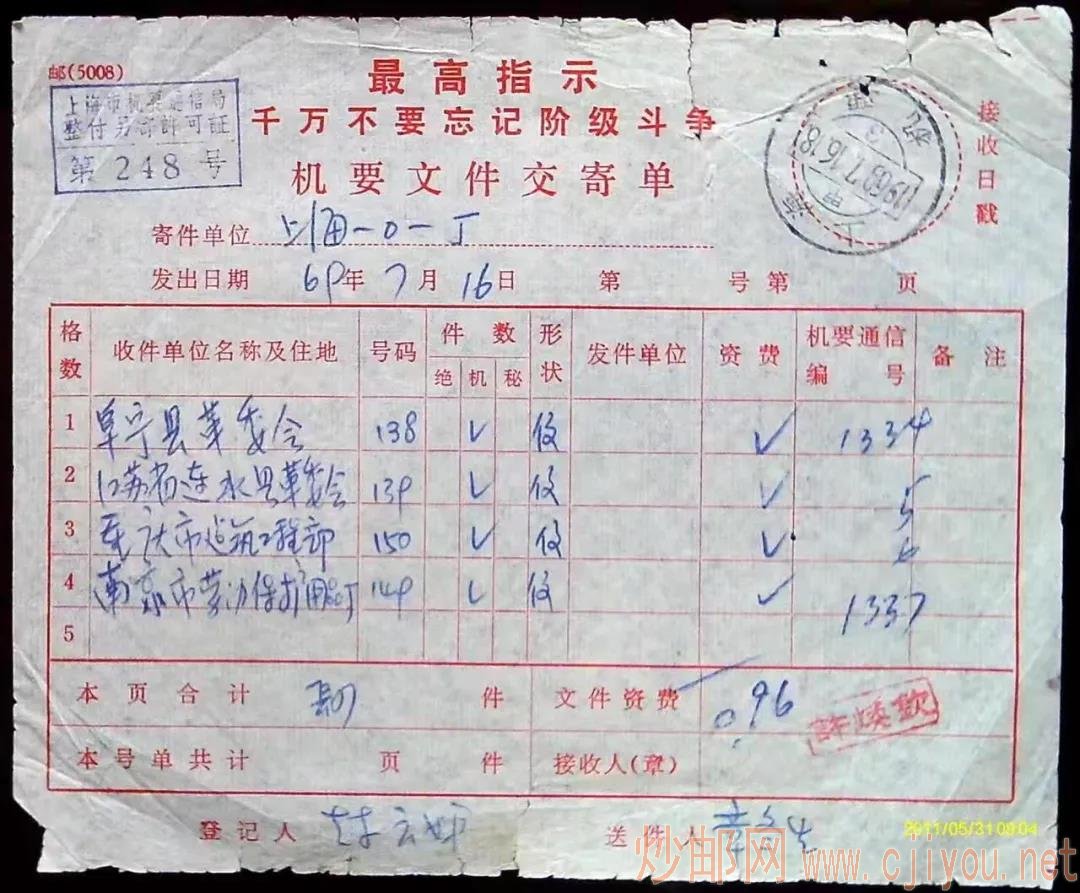 邮(5008)
最高指示
千万不要忘记阶级斗争
机要文件交寄单
上海市机要通信局
整付另寄許可証
第 248 号
接收日戳
上海
1969.7.16.18
寄件单位 上海一〇一厂
发出日期 69年 7月 16日 第 号第 页
格数 收件单位名称及住地 号码 件数 形状 发件单位 资费 机要通信编号 备注
绝 机 秘
1 阜宁县革委会 138 ✓ 仅 ✓ 1334
2 江苏省涟水县革委会 139 ✓ 仅 ✓ 5
3 重庆市建筑工程部 150 ✓ 仅 ✓ 6
4 南京市劳动保护用品厂 149 ✓ 仅 ✓ 1337
5
本页合计 件 文件资费 0.96
本号单共计 页 件 接收人(章)
登记人 送件人
2011/05/31 09:04
炒邮网 www.cjiyou.net